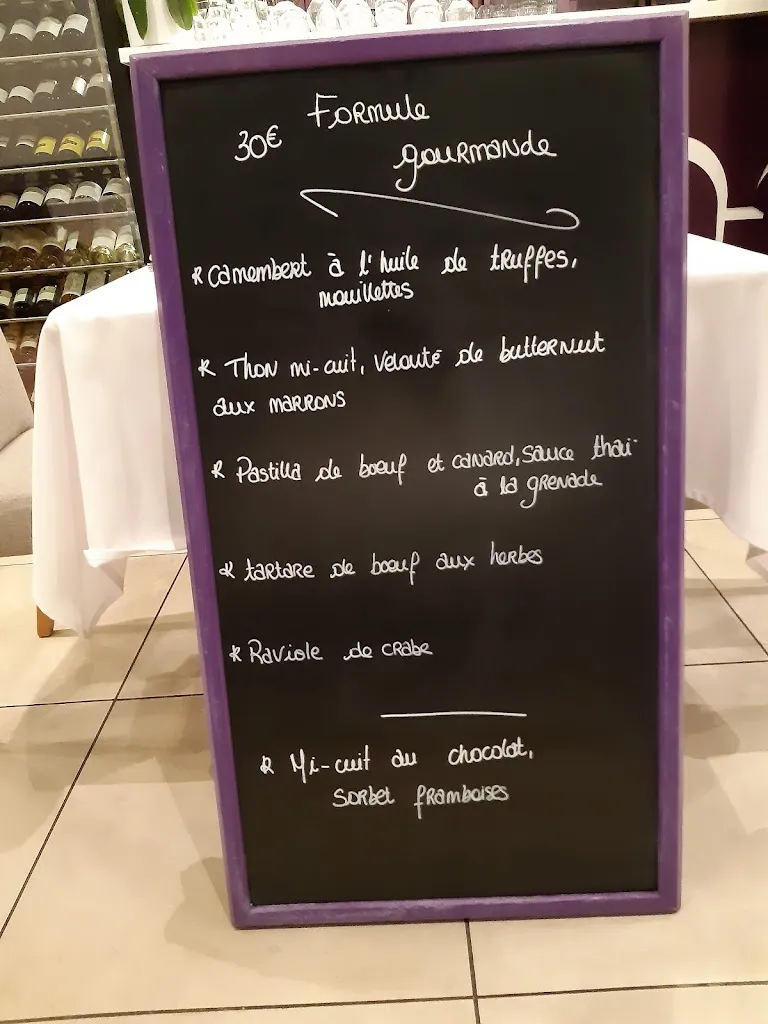 Formule
30€
gourmande
* Camembert à l'huile de truffes,
mouillettes
* Thon mi-cuit, Velouté de butternut
aux marrons
* Pastilla de boeuf et canard, sauce thaï
à la grenade
* tartare de boeuf aux herbes
* Raviole de crabe
* Mi-cuit au chocolat,
sorbet framboises